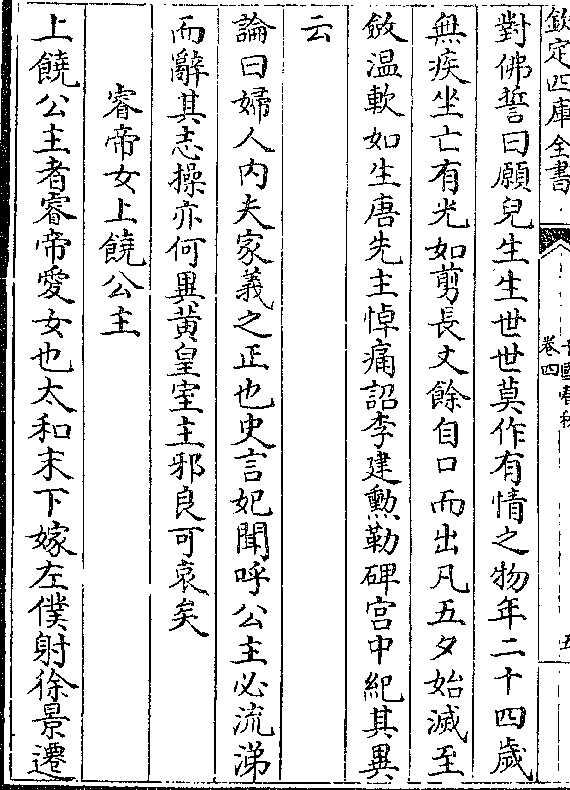 欽定四庫全書
十國春秋
卷四
五
對佛誓曰願兒生生世世莫作有情之物年二十四歲
無疾坐亡有光如剪長丈餘自口而出凡五夕始滅至
斂温軟如生唐先主悼痛詔李建勲勒碑宫中紀其異
云
論曰婦人内夫家義之正也史言妃聞呼公主必流涕
而辭其志操亦何異黄皇室主邪良可哀矣
睿帝女上饒公主
上饒公主者睿帝愛女也太和末下嫁左僕射徐景遷